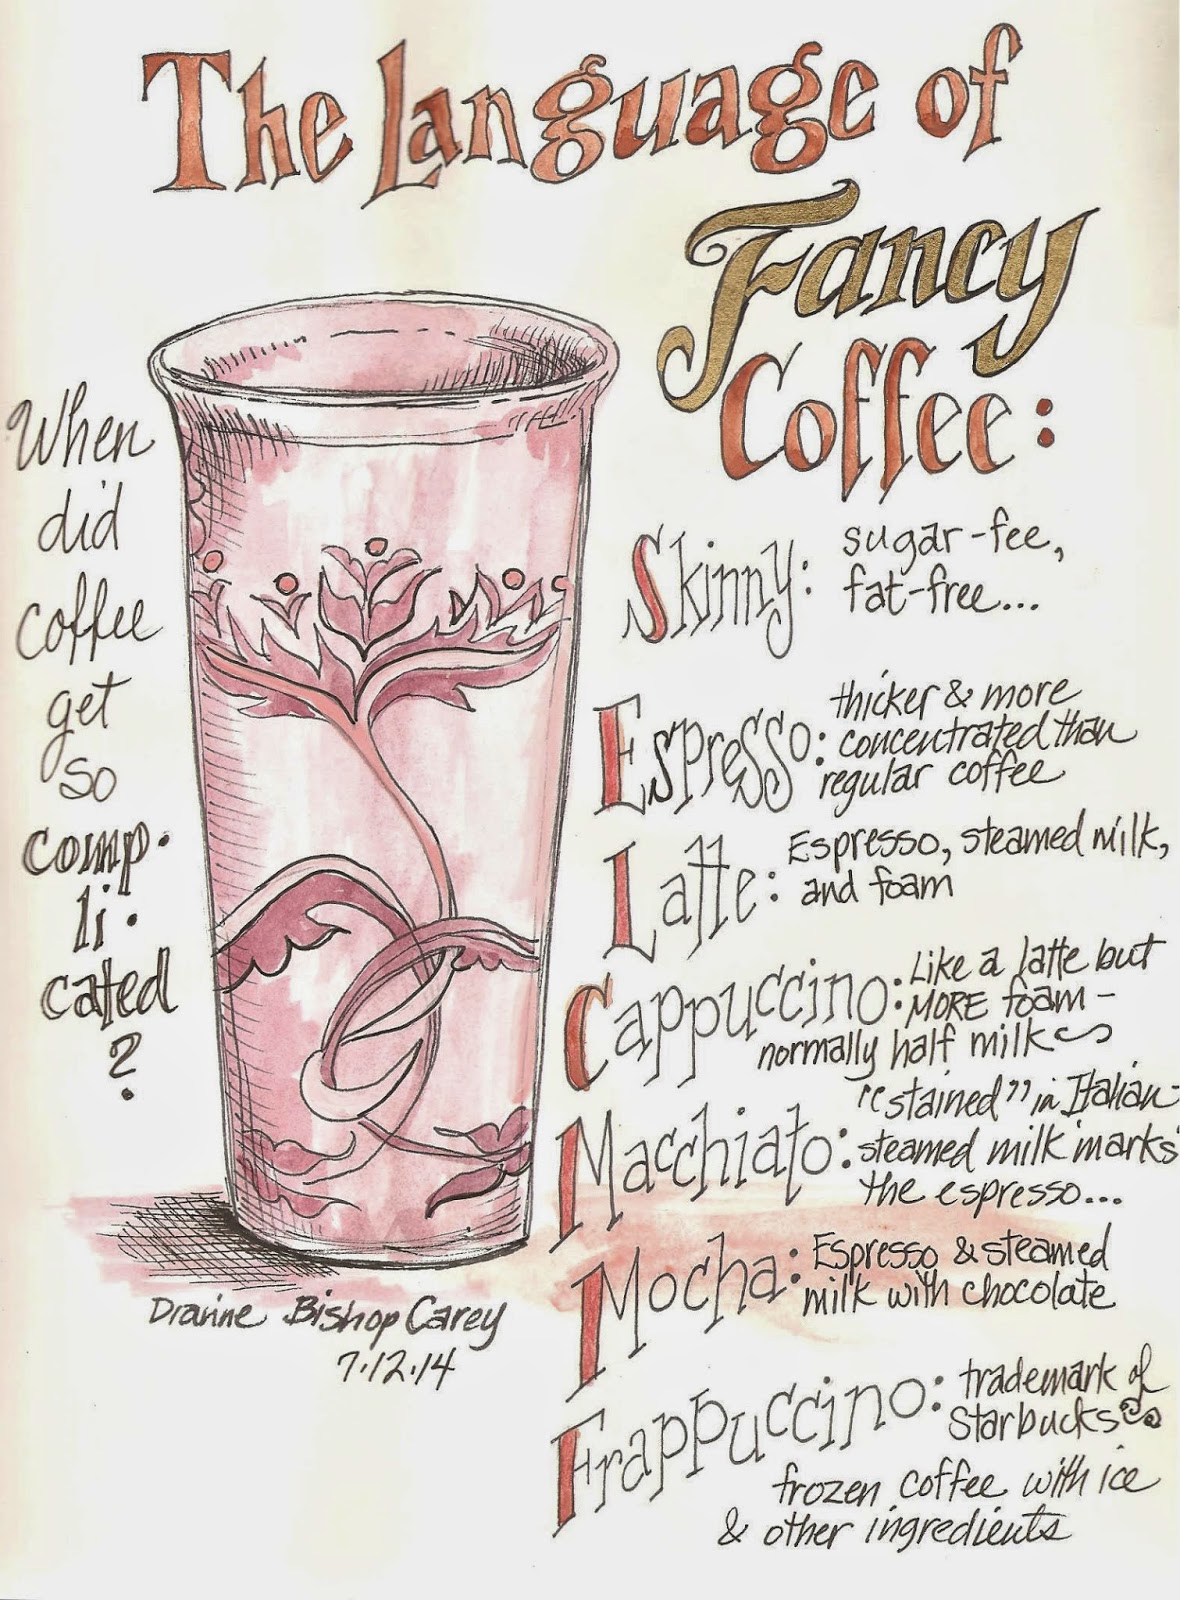 The Language of
Fancy
Coffee:
When
did
coffee
get
so
comp·
li·
cated
?
Skinny: sugar-fee,
fat-free...
Espresso: thicker & more
concentrated than
regular coffee
Latte: Espresso, steamed milk,
and foam
Cappuccino: Like a latte but
MORE foam-
normally half milk
Macchiato: "stained" in Italian-
steamed milk 'marks'
the espresso...
Mocha: Espresso & steamed
milk with chocolate
Frappuccino: trademark of
Starbucks
frozen coffee with ice
& other ingredients
Bishop Carey
7·12·14